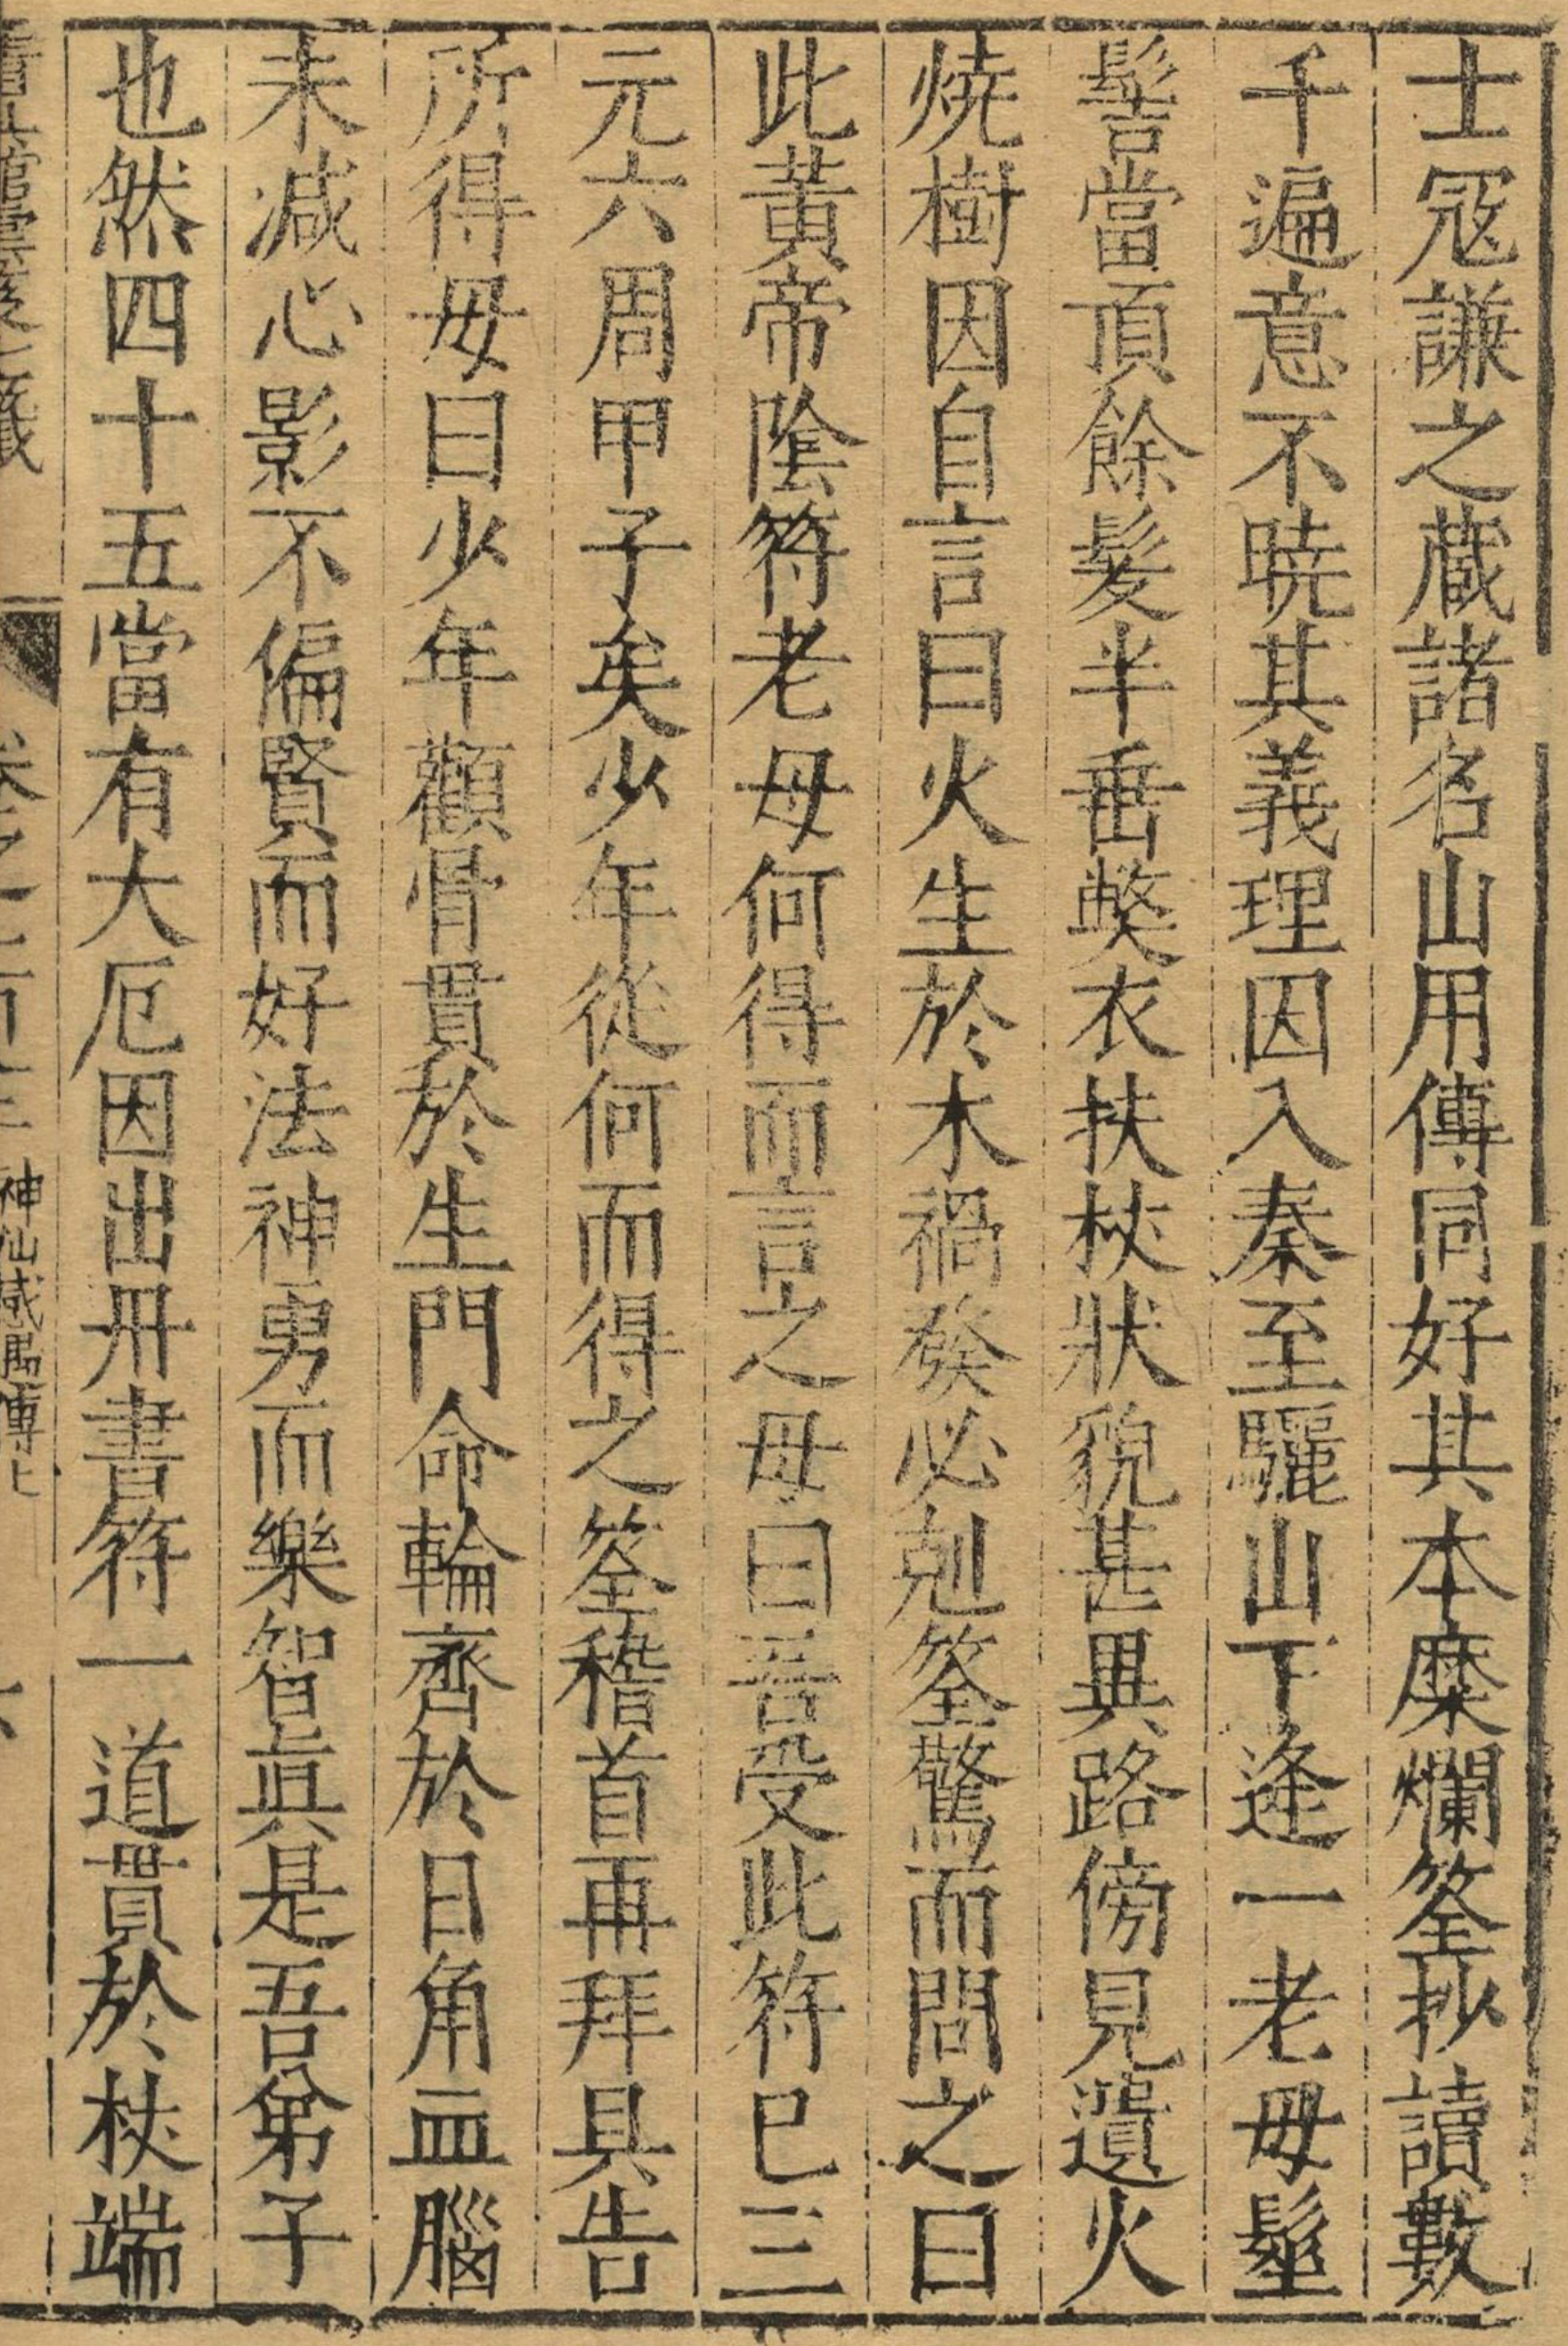 士冦謙之藏諸名山用傳同好其本糜爛筌抄讀數
千遍意不曉其義理因入秦至驪山下逢一老母髽
髻當頂餘髮半垂獘衣扶杖狀貌甚異路傍見遺火
燒樹因自言曰火生於木禍發必剋筌驚而問之曰
此黃帝隂符老母何得而言之母曰吾受此符已三
元六周甲子矣少年從何而得之筌稽首再拜具告
所得母曰少年顴骨貫於生門命輪齊於日角血腦
未減心影不偏賢而好法神勇而樂智眞是吾弟子
也然四十五當有大厄因出丹書符一道貫於杖端
神仙感遇傳上